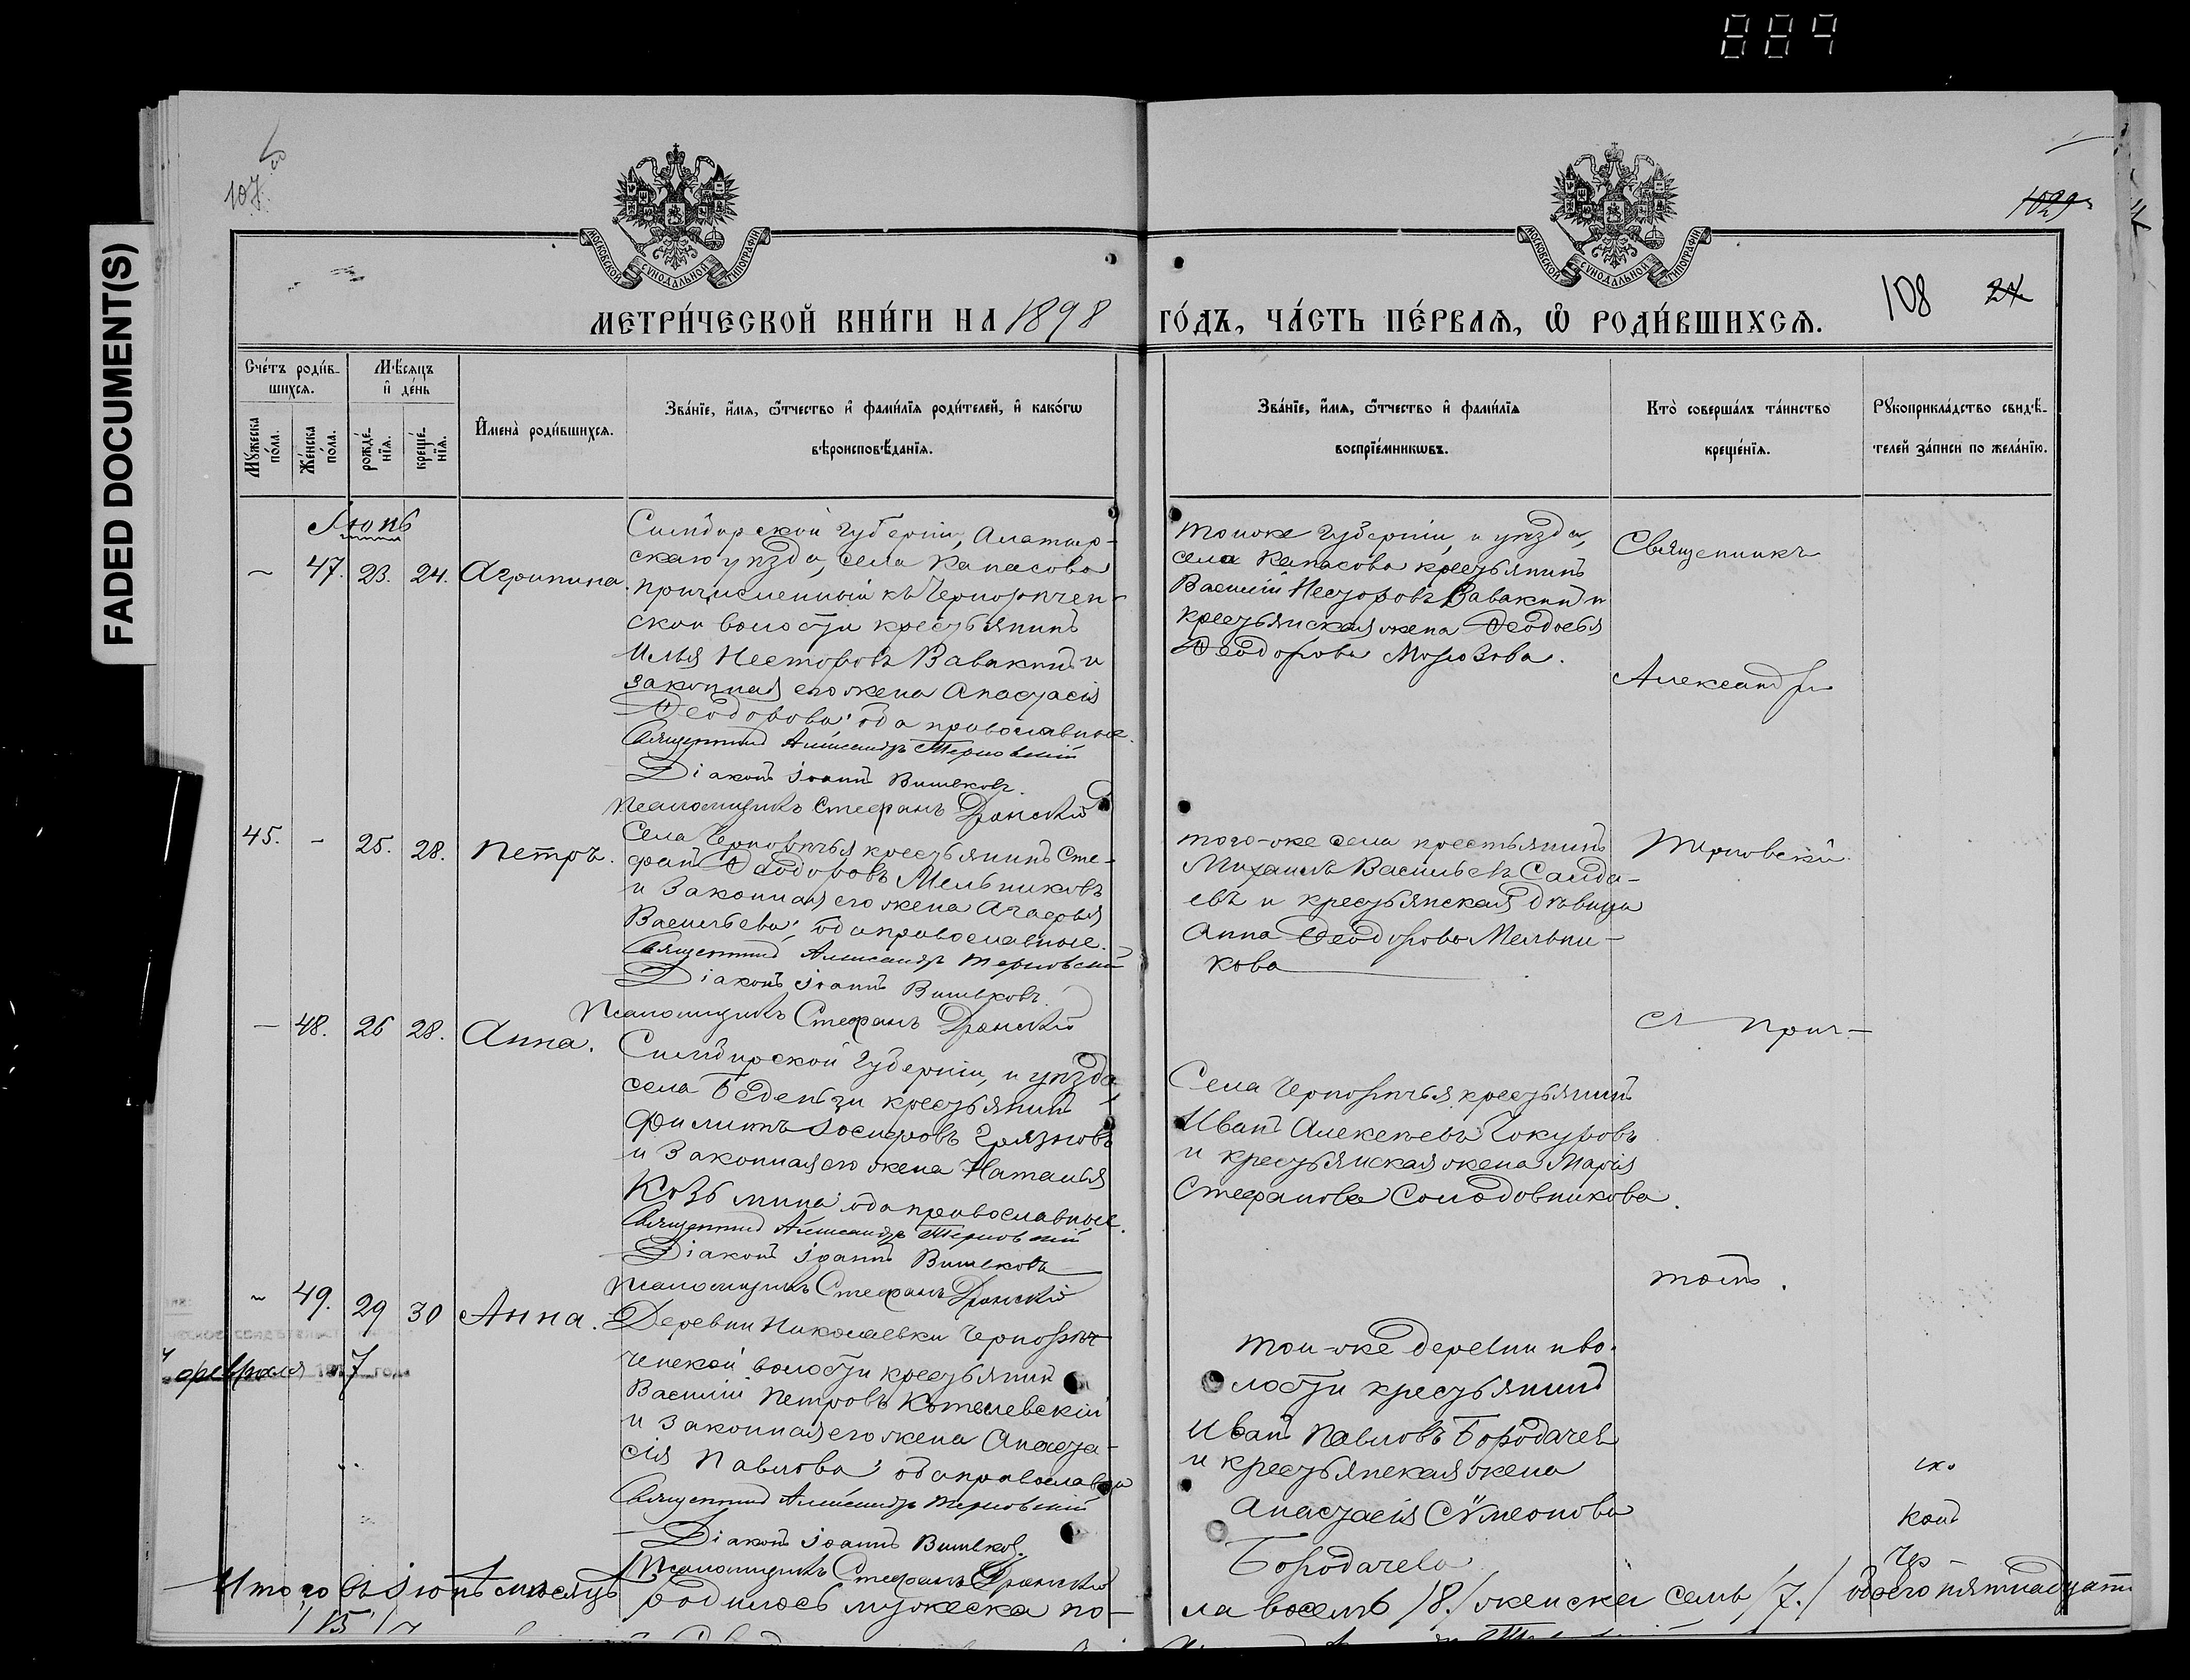 889
FADED DOCUMENT(S)
107.
1029
108 24
МОСКОВСКОЙ СУНОДАЛЬНОЙ ТИПОГРАФІИ
МОСКОВСКОЙ СУНОДАЛЬНОЙ ТИПОГРАФІИ
МЕТРИ́ЧЕСКОЙ КНИ́ГИ НА 1898 ГО́ДЪ, ЧА́СТЬ ПЕ́РВАЯ, Ѽ РОДИ́ВШИХСЯ.
Сче́тъ роди́в-
шихся.
Мѣ́сяцъ
и҆ де́нь
Мꙋ́жеска по́ла.
Же́нска по́ла.
рожде́-
нїя.
креще́-
нїя.
И҆мена̀ роди́вшихся.
Зва́нїе, и҆́мя, ѻ҆́тчество и҆ фами́лїя роди́телей, и҆ како́гѡ
вѣроисповѣ́данїя.
Зва́нїе, и҆́мя, ѻ҆́тчество и҆ фами́лїя
воспрїе́мникѡвъ.
Кто̀ соверша́лъ та́инство
креще́нїя.
Рꙋкоприкла́дство свидѣ́-
телей за́писи по жела́нїю.
Іюнь
– 47. 23. 24. Агрипина.
Симбирской губерніи, Алатыр-
скаго уѣзда, села Капасова
причисленный къ Чернорѣчен-
ской волости крестьянинъ
Илья Несторовъ Вавакинъ и
законная его жена Анастасія
Ѳеодорова; оба православные.
Священникъ Александръ Терновскій
Діаконъ Іоаннъ Вишвковъ.
Псаломщикъ Стефанъ Дранскій
тойже губерніи, и уѣзда,
села Капасова крестьянинъ
Василій Несторовъ Вавакинъ и
крестьянская жена Ѳеодосья
Ѳеодорова Морозова.
Священникъ
Александръ
45. – 25. 28. Петръ.
Села Чернорѣчья крестьянинъ Сте-
фанъ Ѳеодоровъ Мельниковъ
и законная его жена Агафья
Васильева; оба православные.
Священникъ Александръ Терновскій
Діаконъ Іоаннъ Вишвковъ.
Псаломщикъ Стефанъ Дранскій
того-же села крестьянинъ
Михаилъ Васильевъ Салда-
евъ и крестьянская дѣвица
Анна Ѳеодорова Мельни-
кова
Терновскій
– 48. 26 28. Анна.
Симбирской губерніи, и уѣзда
села Беденьги крестьянинъ
Филиппъ Іосифовъ Грязновъ
и законная его жена Наталья
Козьмина; оба православные.
Священникъ Александръ Терновскій
Діаконъ Іоаннъ Вишвковъ
Псаломщикъ Стефанъ Дранскій
Села Чернорѣчья крестьянинъ
Иванъ Алексѣевъ Чокуровъ
и крестьянская жена Марія
Стефанова Солодовникова.
съ прич-
томъ.
– 49. 29 30 Анна.
Деревни Николаевки Чернорѣ-
ченской волости крестьянинъ
Василій Петровъ Котелевскій
и законная его жена Анаста-
сія Павлова; оба православны
Священникъ Александръ Терновскій
Діаконъ Іоаннъ Вишвков.
Псаломщикъ Стефанъ Дранскій
той-же деревни и во-
лости крестьянинъ
Иванъ Павловъ Бородачев
и крестьянская жена
Анастасія Сѵмеонова
Бородачева
февраля 1917 года
Итого въ Іюнѣ мѣсяцѣ родилось мужеска по-
ла восемь /8./ женска семь /7./ обоего пятнадцать
/15/